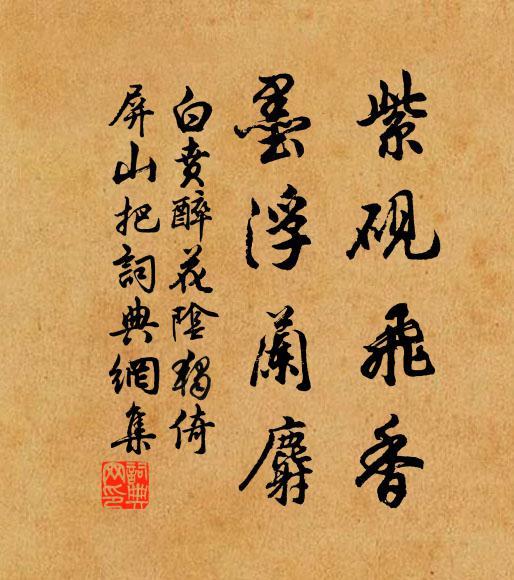 紫硯飛香
墨浮蘭麝
白賁醉花陰獨倚
屏山把詞典網集
詞典網印